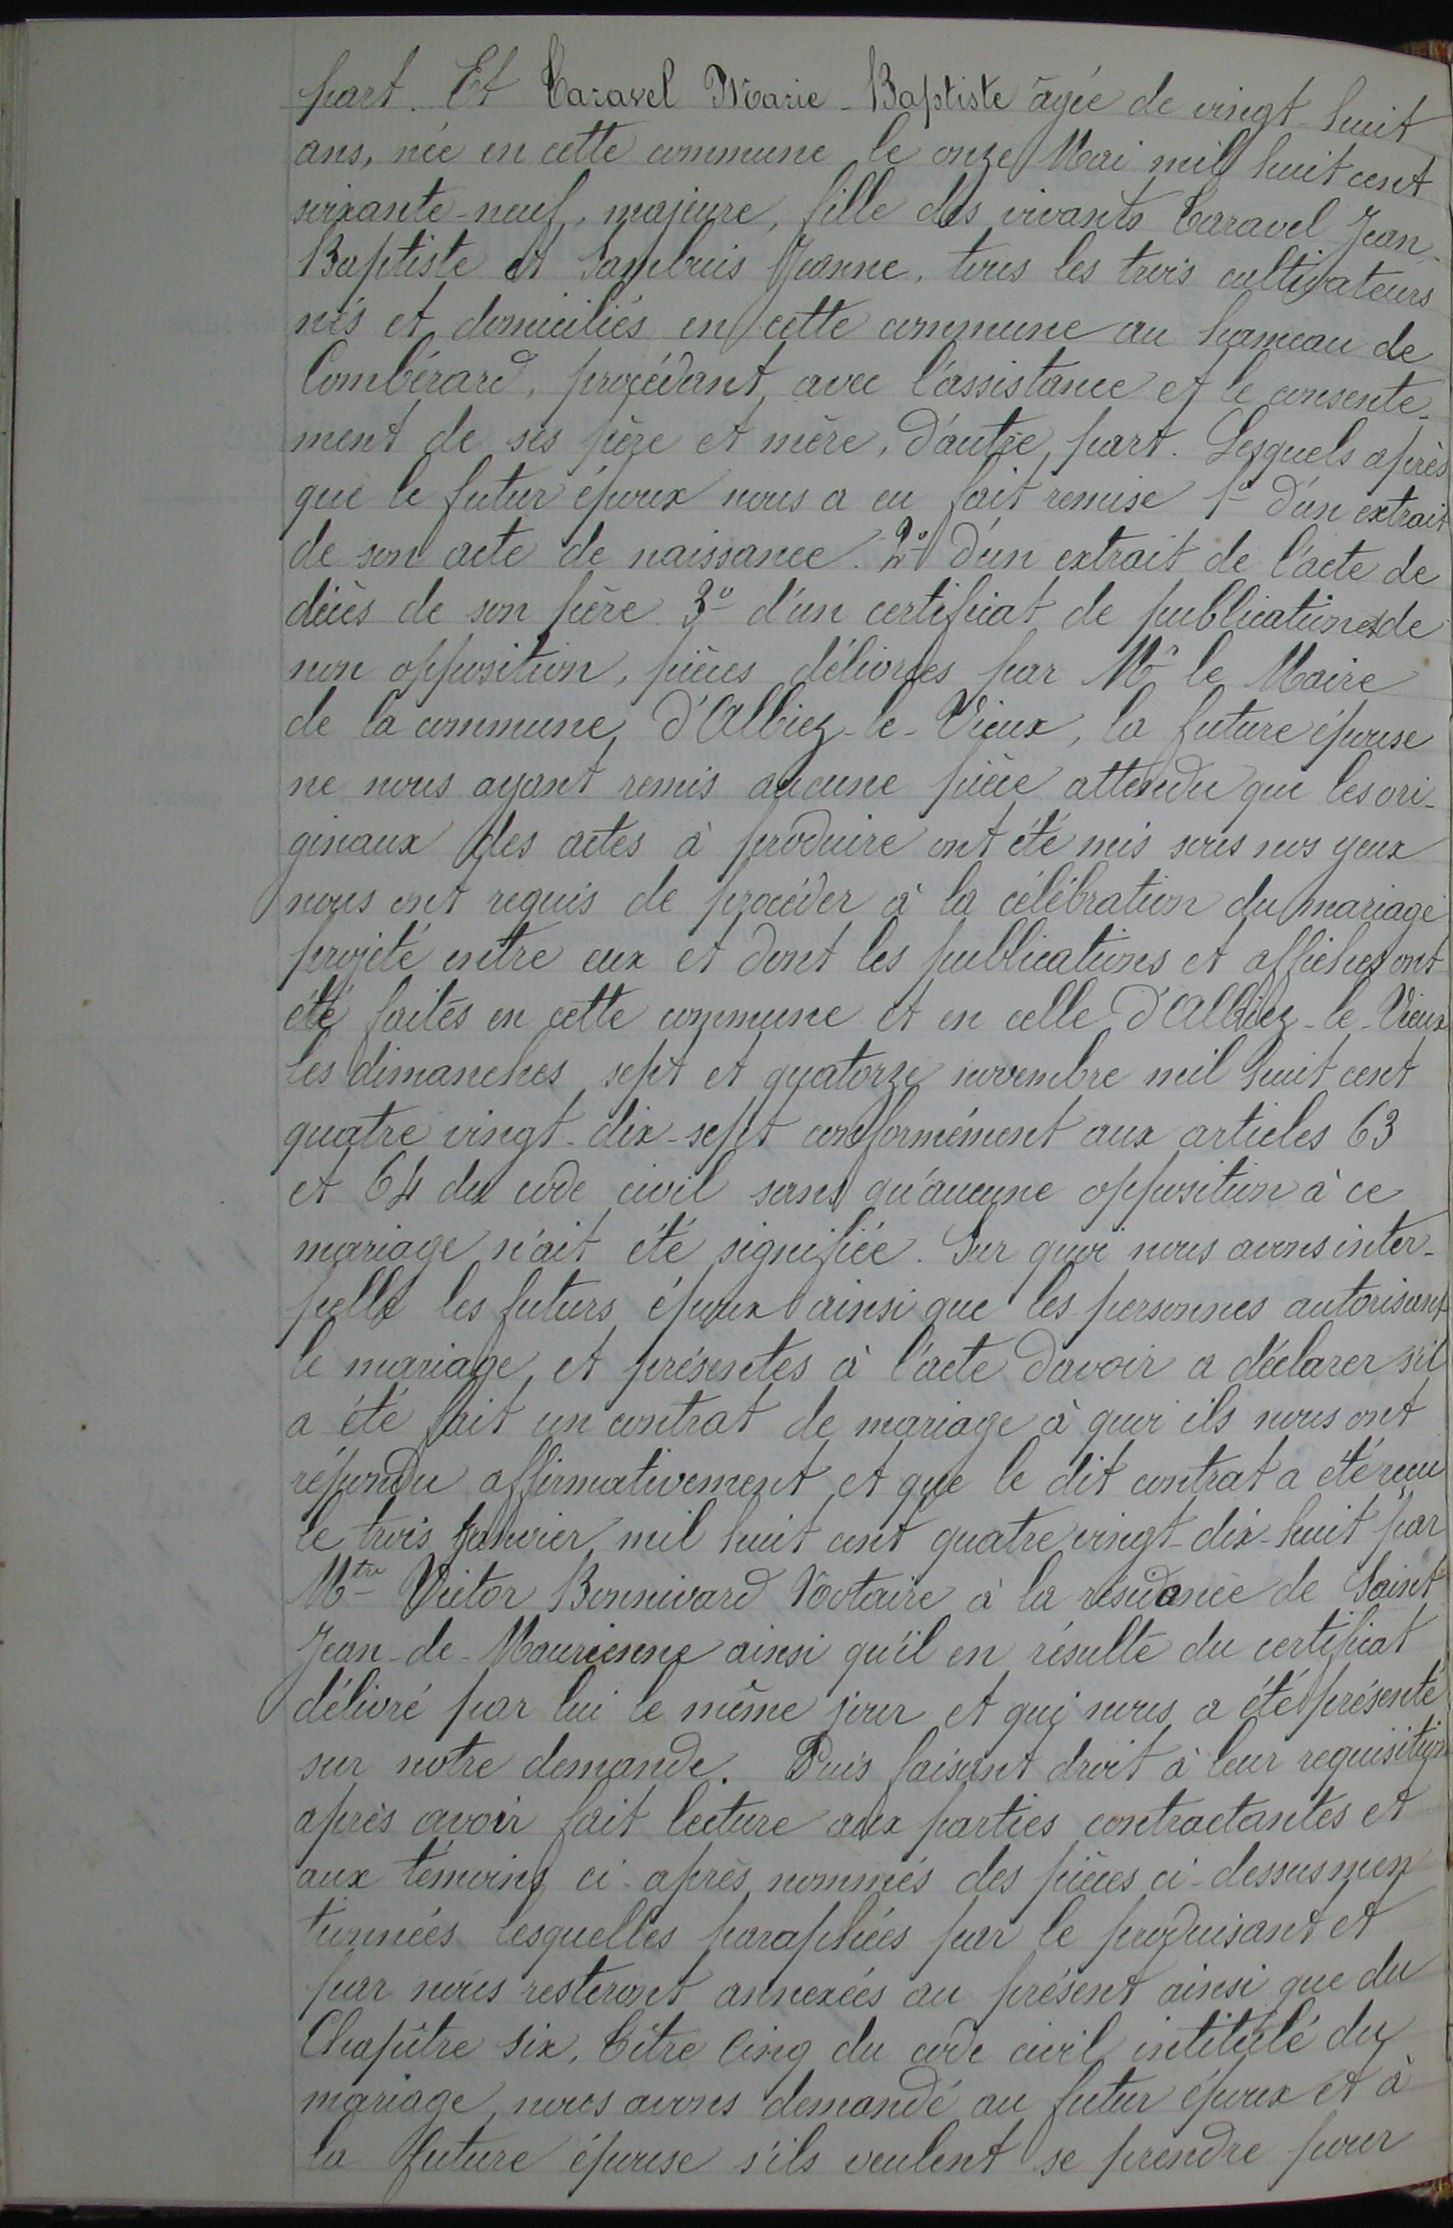 part. Et Caravel Marie-Baptiste âgée de vingt-huit
ans, née en cette commune le onze Mai mil huit cent
soixante-neuf, majeure, fille des vivants Caravel Jean-
Baptiste et Sambuis Jeanne, tous les trois cultivateurs
nés et domiciliés en cette commune au hameau de
Combérard, procédant avec l'assistance et le consente-
ment de ses père et mère, d'autre part. Lesquels après
que le futur époux nous a eu fait remise 1° d'un extrait
de son acte de naissance. 2° d'un extrait de l'acte de
décès de son père 3° d'un certificat de publication et de
non opposition, pièces délivrées par Mr le Maire
de la commune d'Albiez-le-Vieux, la future épouse
ne nous ayant remis aucune pièce attendu que les ori-
ginaux des actes à produire ont été mis sous nos yeux
nous ont requis de procéder à la célébration du mariage
projeté entre eux et dont les publications et affiches ont
été faites en cette commune et en celle d'Albiez-le-Vieux
les dimanches sept et quatorze novembre mil huit cent
quatre vingt-dix-sept conformément aux articles 63
et 64 du code civil sans qu'aucune opposition à ce
mariage n'ait été signifiée. Sur quoi nous avons inter-
pellé les futurs époux ainsi que les personnes autorisant
le mariage et présentes à l'acte d'avoir a déclarer s'il
a été fait un contrat de mariage à quoi ils nous ont
répondu affirmativement et que le dit contrat a été reçu
le trois janvier mil huit cent quatre vingt-dix-huit par
Mtre Victor Bonnivard Notaire à la résidance de Saint
Jean-de-Maurienne ainsi qu'il en résulte du certificat
délivré par lui le même jour et qui nous a été présenté
sur notre demande. Puis faisant droit à leur requisition
après avoir fait lecture aux parties contractantes et
aux témoins ci-après nommés des pièces ci-dessus men
tionnées lesquelles paraphées par le produisant et
par nous resteront annexées au présent ainsi que du
Chapître six, Titre Cinq du code civil intitulé du
mariage nous avons demandé au futur époux et à
la future épouse s'ils veulent se prendre pour